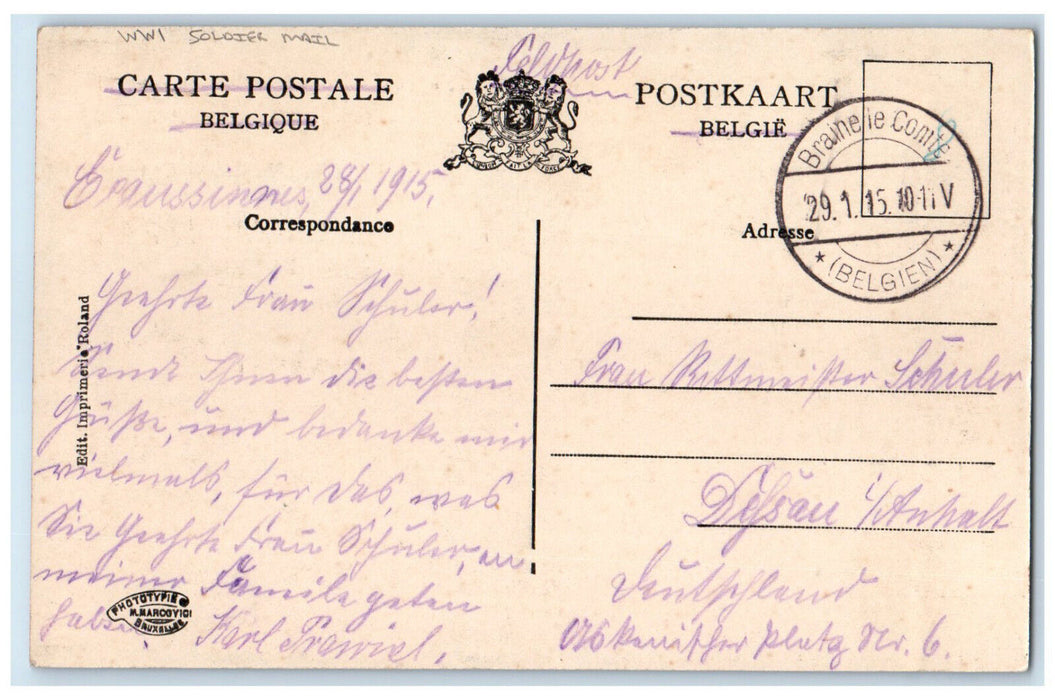 WW1 SOLDIER MAIL
Feldpost
CARTE POSTALE
BELGIQUE
POSTKAART
BELGIË
Braine le Comte
29.1.15.10-11V
* (BELGIEN) *
Ecaussinnes, 28/1 1915.
Correspondance
Adresse
Geehrte Frau Schuler!
Sende Ihnen die besten
Grüße, und bedanke mir
vielmals, für das, was
Sie Geehrte Frau Schuler, an
meiner Familie geten
haben. Karl
Frau Rittmeister Schuler
Dessau i/Anhalt
Deutschland
Askanischer Platz Nr. 6.
Edit. Imprimerie Roland
PHOTOTYPIE
M. MARCOVICI
BRUXELLES